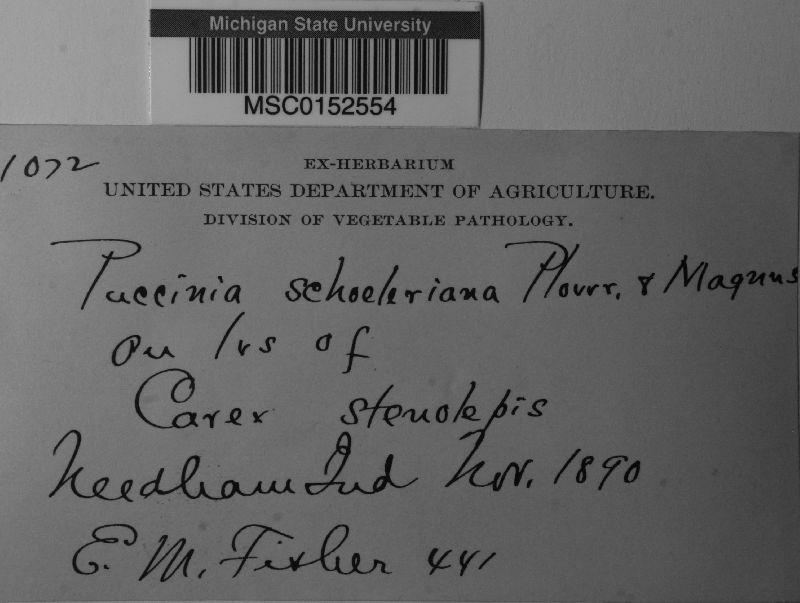 Michigan State University
MSC0152554
1072
EX-HERBARIUM
UNITED STATES DEPARTMENT OF AGRICULTURE.
DIVISION OF VEGETABLE PATHOLOGY.
Puccinia schoeleriana Plowr. & Magnus
on lvs of
Carex stenolepis
Needham Ind Nov. 1890
E. M. Fisher 441